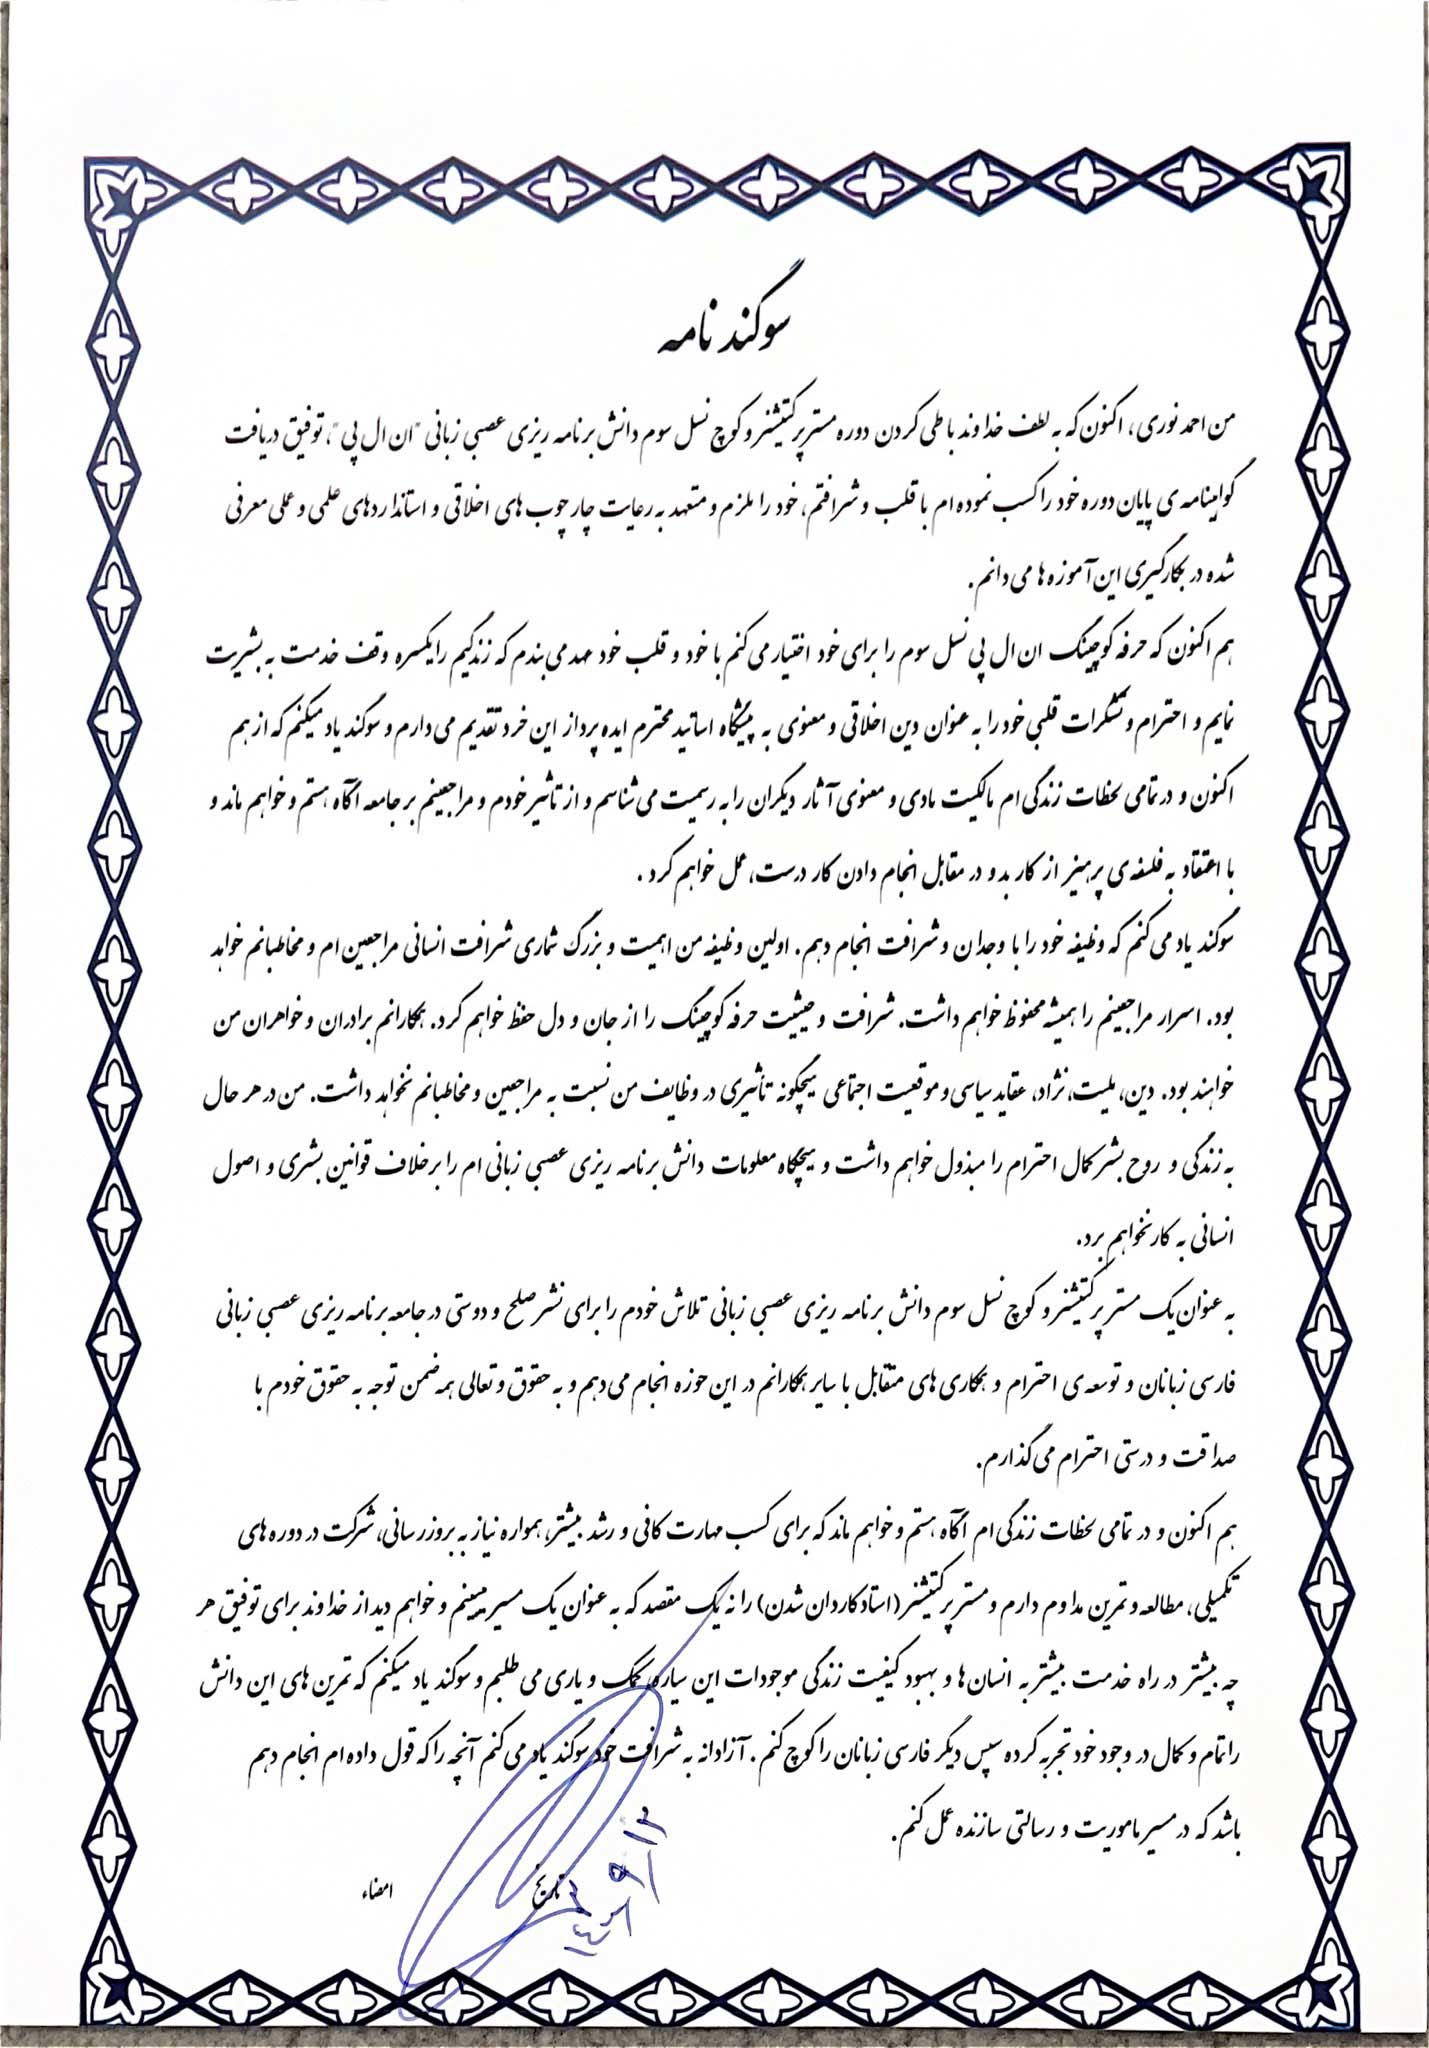 سوگند نامه
من احمد نوری، اکنون که به لطف خداوند با طی کردن دوره مستر پرکتیشنر و کوچ نسل سوم دانش برنامه ریزی عصبی زبانی "ان ال پی"، توفیق دریافت
گواهینامه ی پایان دوره خود را کسب نموده ام با قلب و شرافتم، خود را ملزم و متعهد به رعایت چارچوب های اخلاقی و استانداردهای علمی و عملی معرفی
شده در بکارگیری این آموزه ها می دانم.
هم اکنون که حرفه کوچینگ ان ال پی نسل سوم را برای خود اختیار می کنم با خود و قلب خود عهد می بندم که زندگیم را یکسره وقف خدمت به بشریت
نمایم و احترام و تشکرات قلبی خود را به عنوان دین اخلاقی و معنوی به پیشگاه اساتید محترم ایده پرداز این خرد تقدیم می دارم و سوگند یاد میکنم که از هم
اکنون و در تمامی لحظات زندگی ام مالکیت مادی و معنوی آثار دیگران را به رسمیت می شناسم و از تاثیر خودم و مراجعینم بر جامعه آگاه هستم و خواهم ماند و
با اعتقاد به فلسفه ی پرهیز از کار بد و در مقابل انجام دادن کار درست، عمل خواهم کرد.
سوگند یاد می کنم که وظیفه خود را با وجدان و شرافت انجام دهم. اولین وظیفه من اهمیت و بزرگ شماری شرافت انسانی مراجعین ام و مخاطبانم خواهد
بود. اسرار مراجعینم را همیشه محفوظ خواهم داشت. شرافت و حیثیت حرفه کوچینگ را از جان و دل حفظ خواهم کرد. همکارانم برادران و خواهران من
خواهند بود. دین، ملیت، نژاد، عقاید سیاسی و موقعیت اجتماعی هیچگونه تأثیری در وظایف من نسبت به مراجعین و مخاطبانم نخواهد داشت. من در هر حال
به زندگی و روح بشر کمال احترام را مبذول خواهم داشت و هیچگاه معلومات دانش برنامه ریزی عصبی زبانی ام را برخلاف قوانین بشری و اصول
انسانی به کار نخواهم برد.
به عنوان یک مستر پرکتیشنر و کوچ نسل سوم دانش برنامه ریزی عصبی زبانی تلاش خودم را برای نشر صلح و دوستی در جامعه برنامه ریزی عصبی زبانی
فارسی زبانان و توسعه ی احترام و همکاری های متقابل با سایر همکارانم در این حوزه انجام می دهم و به حقوق و تعالی همه ضمن توجه به حقوق خودم با
صداقت و درستی احترام می گذارم.
هم اکنون و در تمامی لحظات زندگی ام آگاه هستم و خواهم ماند که برای کسب مهارت کافی و رشد بیشتر، همواره نیاز به بروزرسانی، شرکت در دوره های
تکمیلی، مطالعه و تمرین مداوم دارم و مستر پرکتیشنر (استاد کاردان شدن) را نه یک مقصد که به عنوان یک مسیر میبینم و خواهم دید از خداوند برای توفیق هر
چه بیشتر در راه خدمت بیشتر به انسان ها و بهبود کیفیت زندگی موجودات این سیاره، کمک و یاری می طلبم و سوگند یاد میکنم که تمرین های این دانش
را تمام و کمال در وجود خود تجربه کرده سپس دیگر فارسی زبانان را کوچ کنم. آزادانه به شرافت خود سوگند یاد می کنم آنچه را که قول داده ام انجام دهم
باشد که در مسیر ماموریت و رسالتی سازنده عمل کنم.
تاریخ امضاء